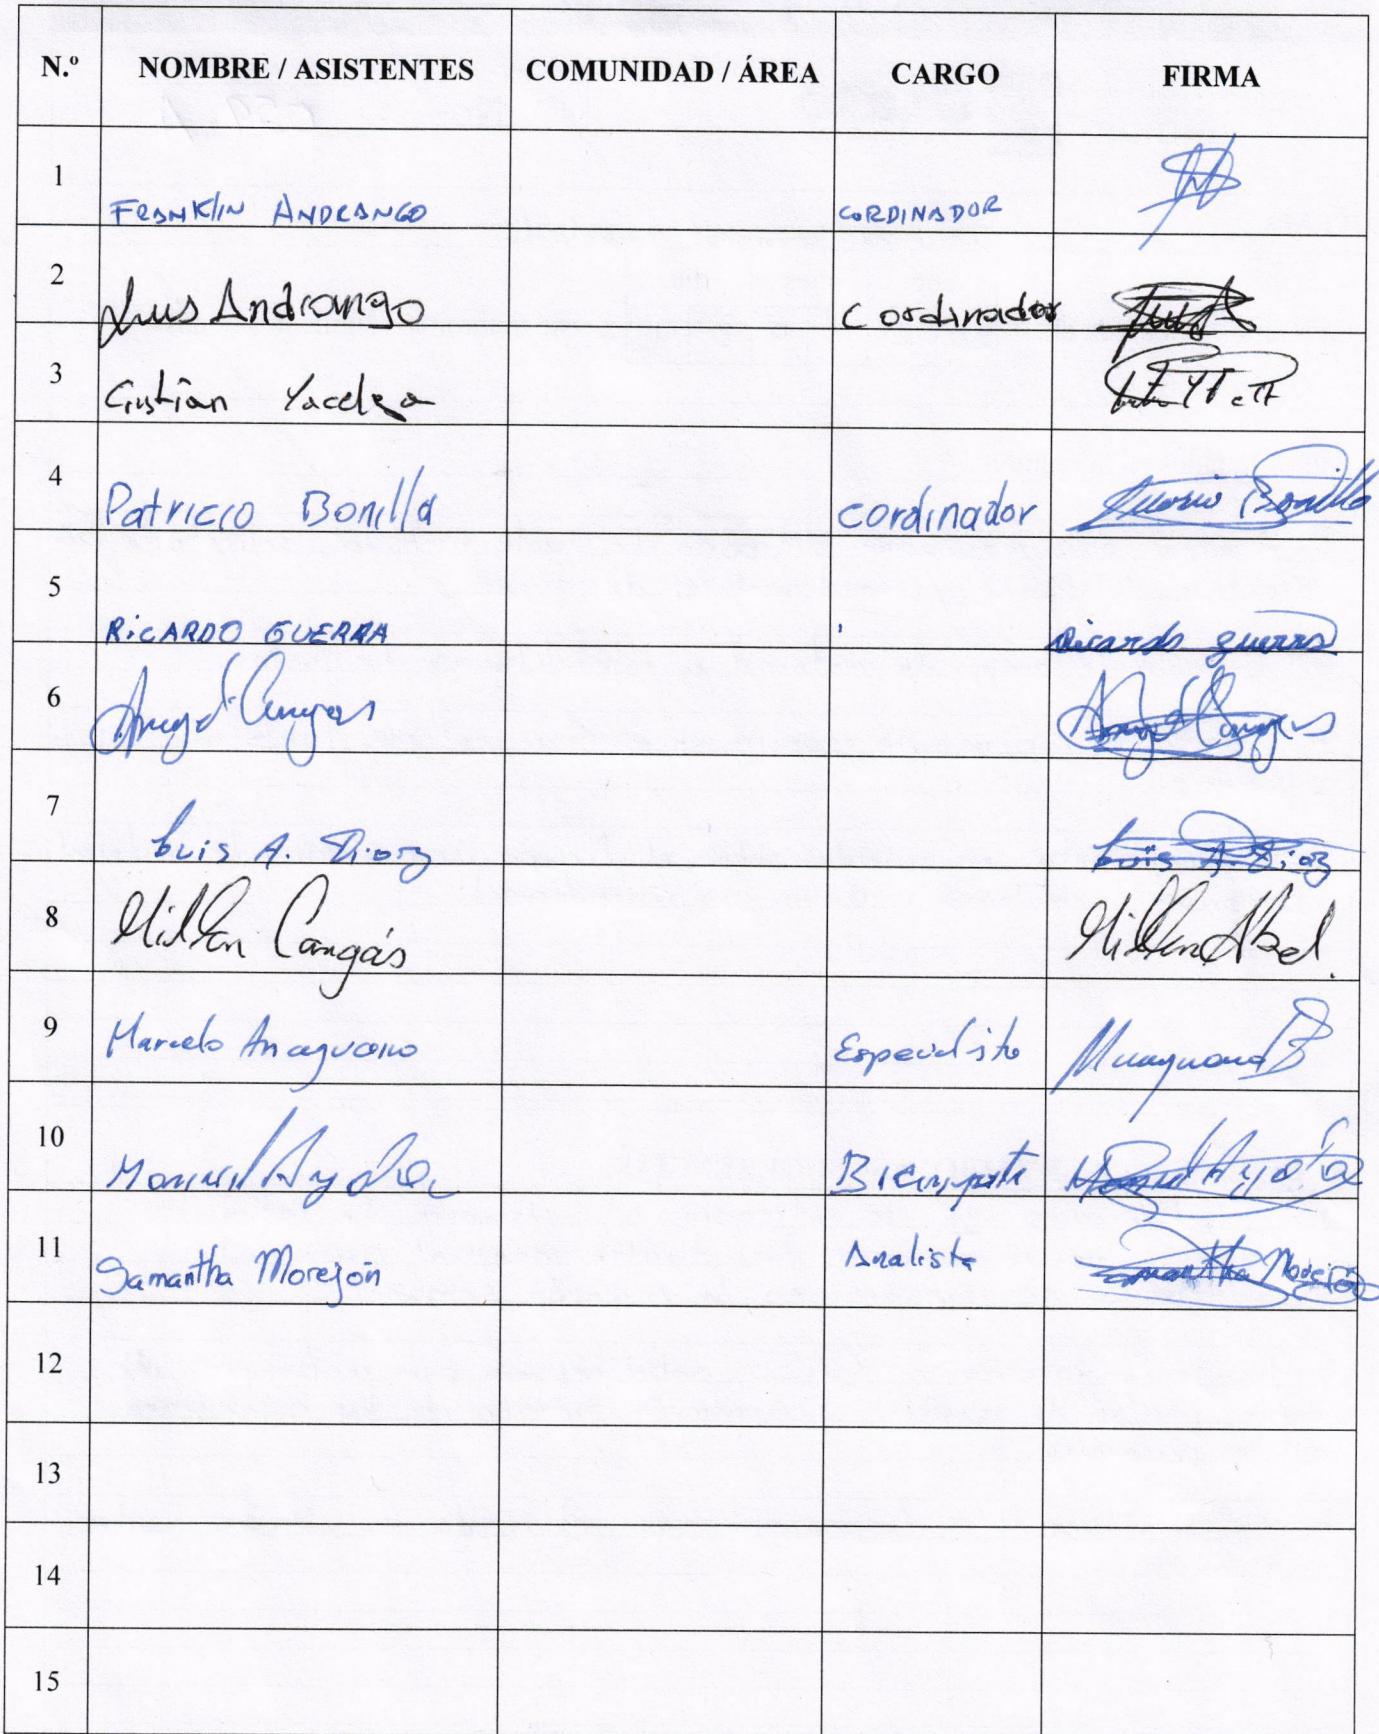 N.º NOMBRE / ASISTENTES COMUNIDAD / ÁREA CARGO FIRMA
1 FRANKLIN ANDRANGO CORDINADOR
2 Luis Andrango Cordinador
3 Cristian Yacelga
4 Patricio Bonilla cordinador Patricio Bonilla
5 RICARDO GUERRA Ricardo guerra
6 Angel Cangas Angel Cangas
7 Luis A. Diaz Luis A. Diaz
8 Milton Cangás Milton Abel.
9 Marcelo Anaguano Especialista
10 Manuel Ayala Manuel Ayala
11 Samantha Morejón Analista Samantha Morejón
12
13
14
15